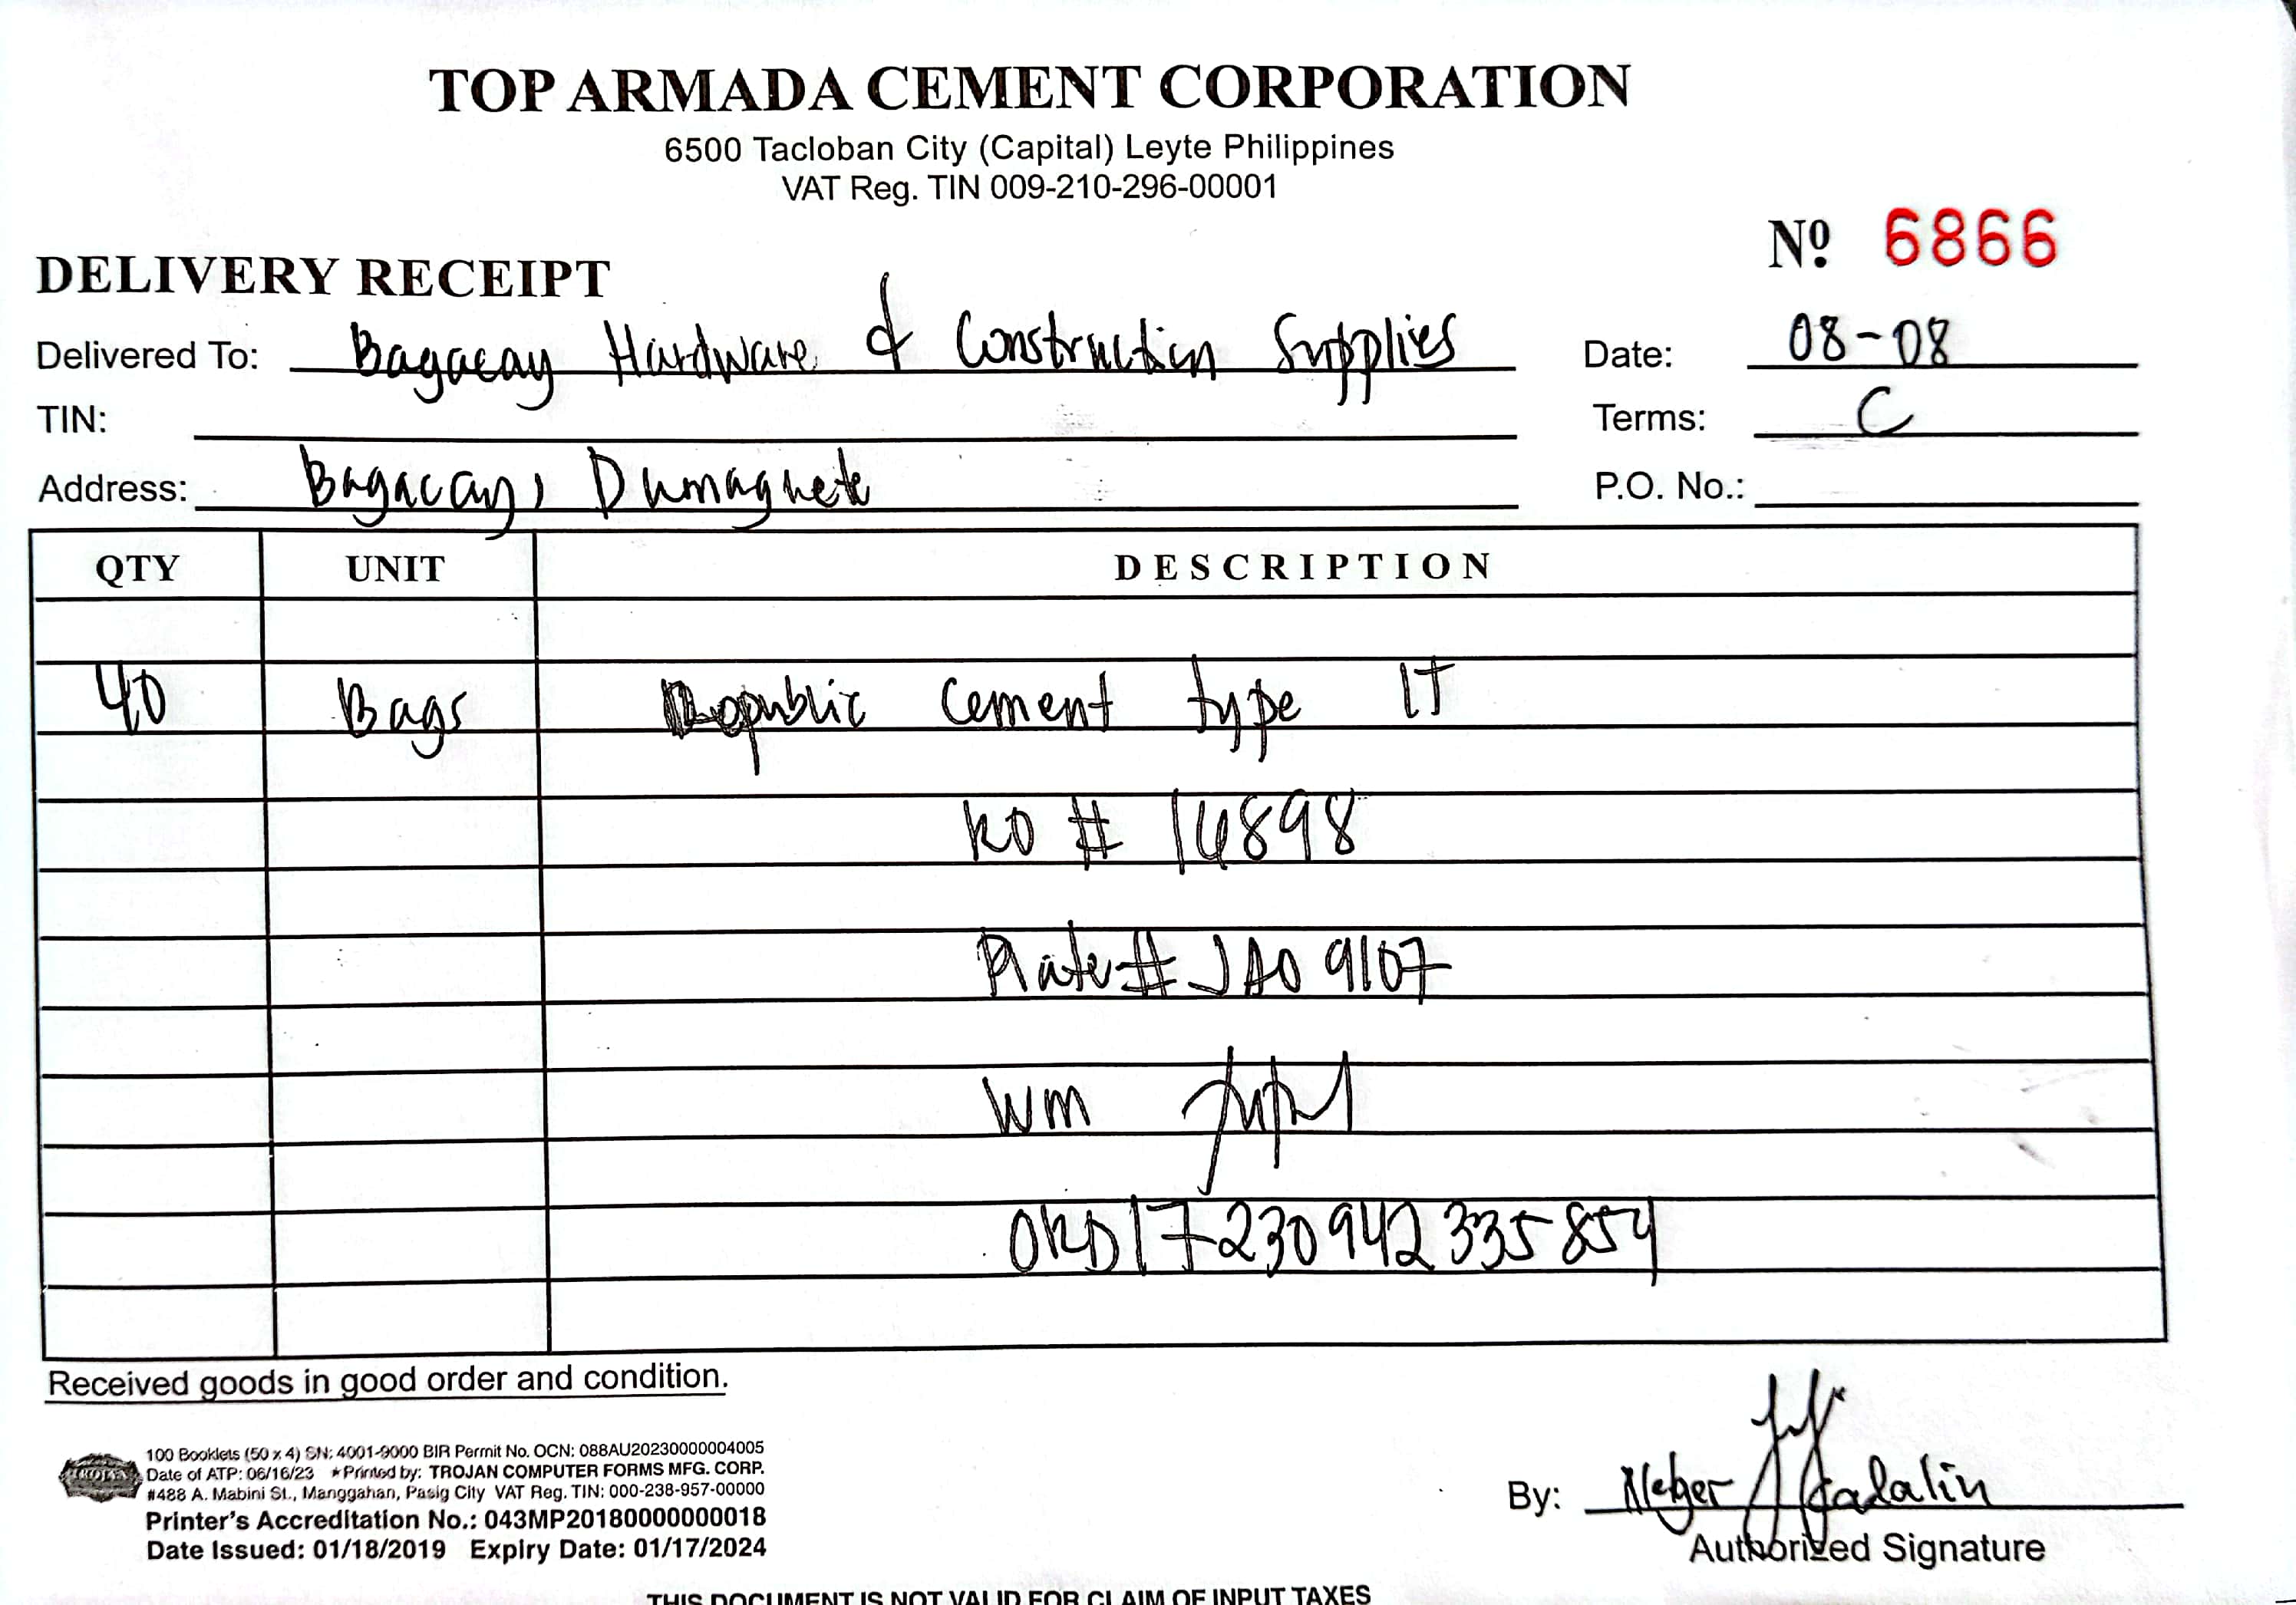 TOP ARMADA CEMENT CORPORATION
6500 Tacloban City (Capital) Leyte Philippines
VAT Reg. TIN 009-210-296-00001
Nº 6866
DELIVERY RECEIPT
Delivered To: Bagacay Hardware & Construction Supplies Date: 08-08
TIN: Terms: C
Address: Bagacay, Dumaguete P.O. No.:
QTY UNIT DESCRIPTION
40 Bags Republic Cement type 1T
KO # 14898
Plate # JAO 9107
WM
ORD17230942335854
Received goods in good order and condition.
100 Booklets (50 x 4) SN: 4001-9000 BIR Permit No. OCN: 088AU20230000004005
TROJAN Date of ATP: 06/16/23 ★ Printed by: TROJAN COMPUTER FORMS MFG. CORP.
#488 A. Mabini St., Manggahan, Pasig City VAT Reg. TIN: 000-238-957-00000
Printer's Accreditation No.: 043MP20180000000018
Date Issued: 01/18/2019 Expiry Date: 01/17/2024
By:
Authorized Signature
THIS DOCUMENT IS NOT VALID FOR CLAIM OF INPUT TAXES